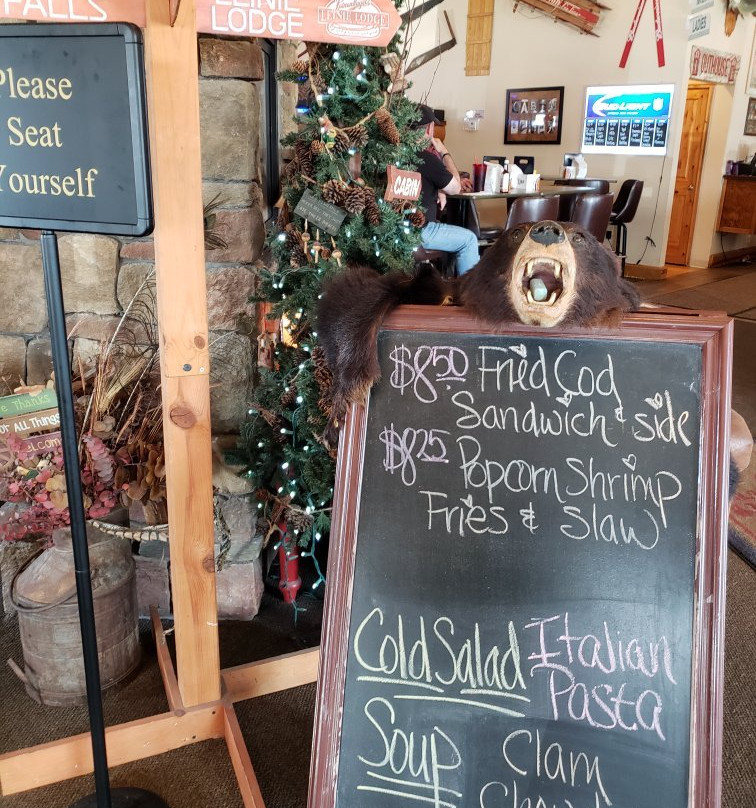 FALLS
LEINIE
LODGE
LEINIE LODGE
Please
Seat
Yourself
CABIN
BUD LIGHT
LADIES
OUTHOUSE
Thanks
for ALL Things
$8.50 Fried Cod
Sandwich & side
$8.25 Popcorn Shrimp
Fries & Slaw
Cold Salad Italian
Pasta
Soup Clam